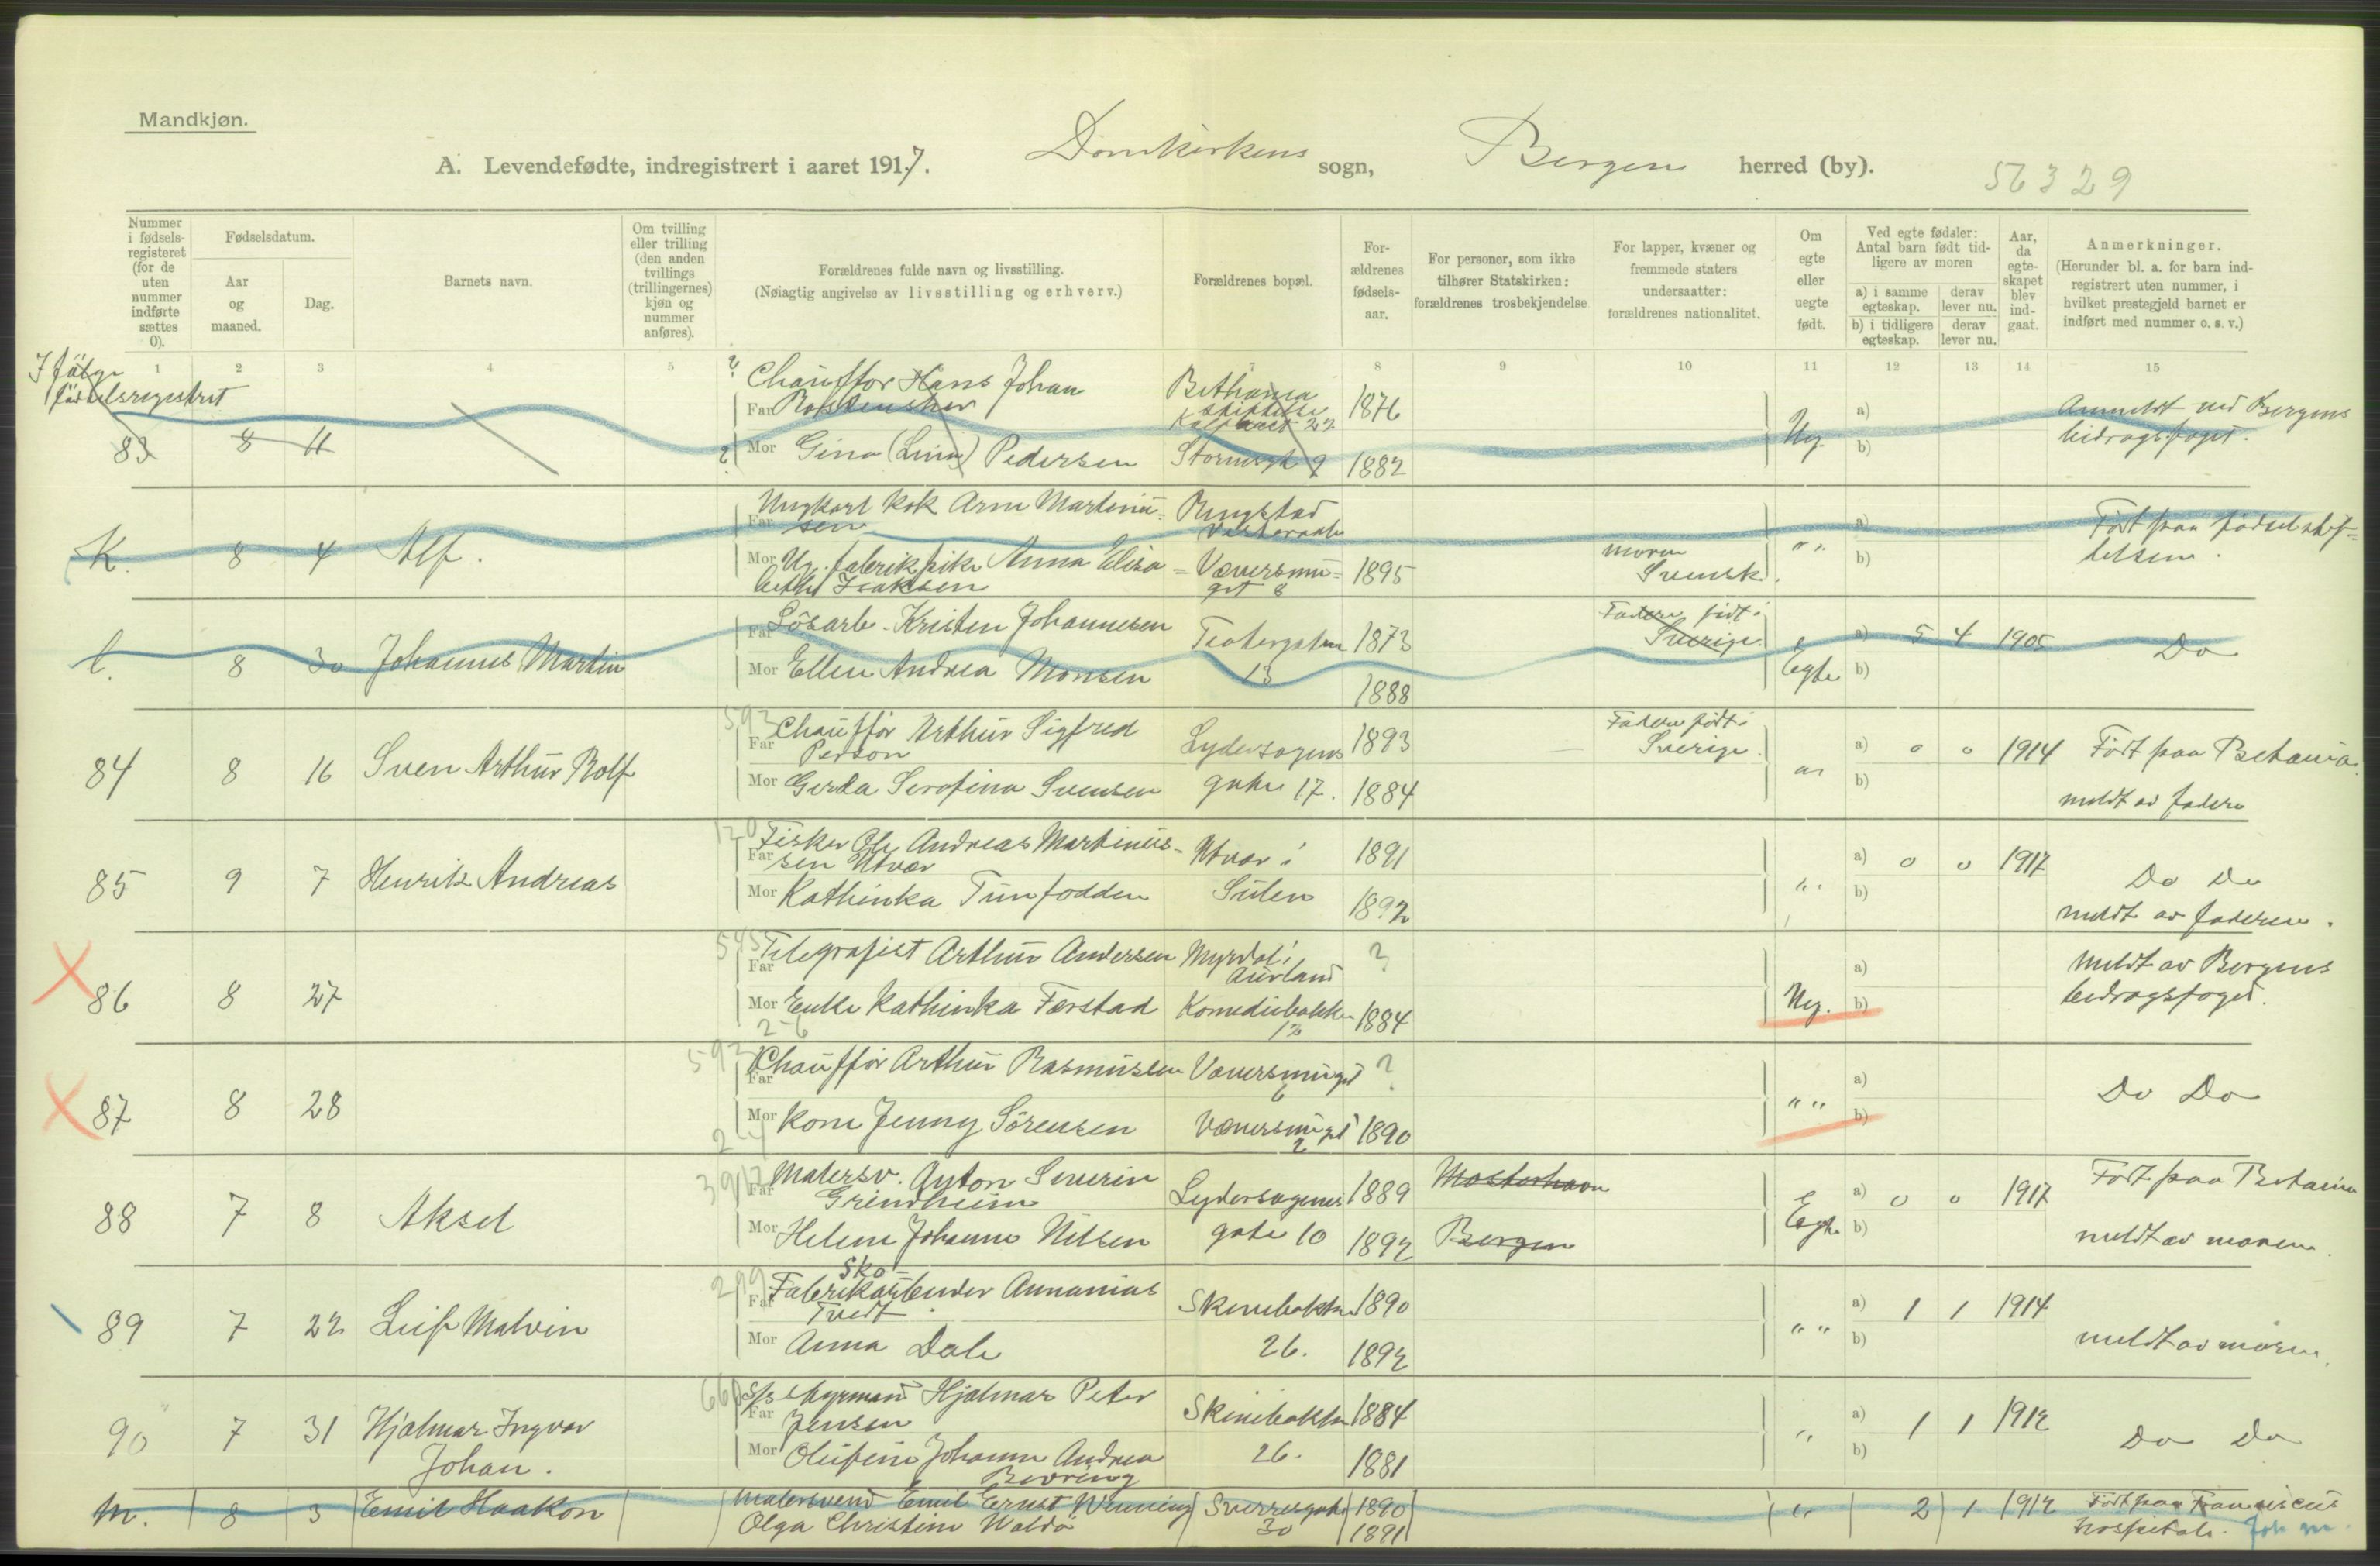 Mandkjøn.
A. Levendefødte, indregistrert i aaret 1917. Domkirkens sogn, Bergen herred (by). 56329
Nummer i fødsels-registeret (for de uten nummer indførte sættes 0).
Fødselsdatum.
Aar og maaned.
Dag.
Barnets navn.
Om tvilling eller trilling (den anden tvillings (trillingernes) kjøn og nummer anføres).
Forældrenes fulde navn og livsstilling.
(Nøiagtig angivelse av livsstilling og erhverv.)
Forældrenes bopæl.
For-ældrenes fødsels-aar.
For personer, som ikke tilhører Statskirken: forældrenes trosbekjendelse
For lapper, kvæner og fremmede staters undersaatter: forældrenes nationalitet.
Om egte eller uegte født.
Ved egte fødsler: Antal barn født tid-ligere av moren
a) i samme egteskap.
derav lever nu.
b) i tidligere egteskap.
derav lever nu.
Aar, da egte-skapet blev ind-gaat.
Anmerkninger.
(Herunder bl. a. for barn ind-registrert uten nummer, i hvilket prestegjeld barnet er indført med nummer o. s. v.)
1 2 3 4 5 8 9 10 11 12 13 14 15
I følge
fødselsregistret
? Chauffør Hans Johan Bethania
Far 1876 a) Anmeldt ved Bergens
83 8 11 Ug. bidragsfoget.
? Mor Gina (Lina) Pedersen Stormgt 9 1882 b)
Ungkarl kok Arne Martinu=
Far sen a) Født paa fødselsstif=
K. 8 4 Alf. " " telsen.
Mor Ug. fabrikpike Anna Elisa= Væversmu= 1895 moren b)
beth Isaksen get 8 Svensk.
Far Løsarb. Kristen Johannesen Teatergaten 1873 Faderen født i a) 5 4 1905 Do
l. 8 30 Johannes Martin 13 Sverige. Egte
Mor Ellen Andrea Monsen 1888 b)
593 Chauffør Arthur Sigfred 1893 Faderen født i
Far Person Lydersagens Sverige. a) 0 0 1914 Født paa Betania
84 8 16 Sven Arthur Rolf
Mor Gerda Serafina Svensen gate 17. 1884 b) meldt av faderen
120 Fisker Ole Andreas Martinus- Utvær i 1891
Far sen Utvær a) 0 0 1917 Do Do
85 9 7 Henrik Andreas " "
Mor Kathinka Tunfodden Sulen 1892 b) meldt av faderen.
545 Telegrafist Arthur Andersen Myrdal i ?
Far Aurland a) Meldt av Bergens
86 8 27 Ug. bidragsfoged.
Mor Enke Kathinka Færstad Komediebakken 1884 b)
2-6 12
593 Chauffør Arthur Rasmussen Væversmuget ?
Far 6 a) Do Do
87 8 28 " "
Mor kone Jenny Sørensen Væversmuget 1890 b)
2-4 2
3917 Malersv. Anton Severin 1889 Mosterhavn
Far Grindheim Lydersagens a) 0 0 1917 Født paa Betania
88 7 8 Aksel Egte
Mor Helene Johanne Nilsen gate 10 1892 Bergen b) meldt av moren.
Sko-
299 Fabrikarbeider Annanias
Far Tvedt Skivebakken 1890 a) 1 1 1914
89 7 22 Leif Malvin " "
Mor Anna Dale 26. 1892 b) meldt av moren.
660 S/s styrmand Hjalmar Peter
Far Jensen Skivebakken 1884 a) 1 1 1912
90 7 31 Hjalmar Ingvar " Do Do
Mor Olufine Johanne Andrea 26. 1881 b)
Johan. Bevring
m. 8 3 Emil Haakon Malersvend Emil Ernst Wenning Sverresgate 1890 " 2 1 1912 Født paa Franciscus
Olga Christine Waldø 30 1891 hospitale.